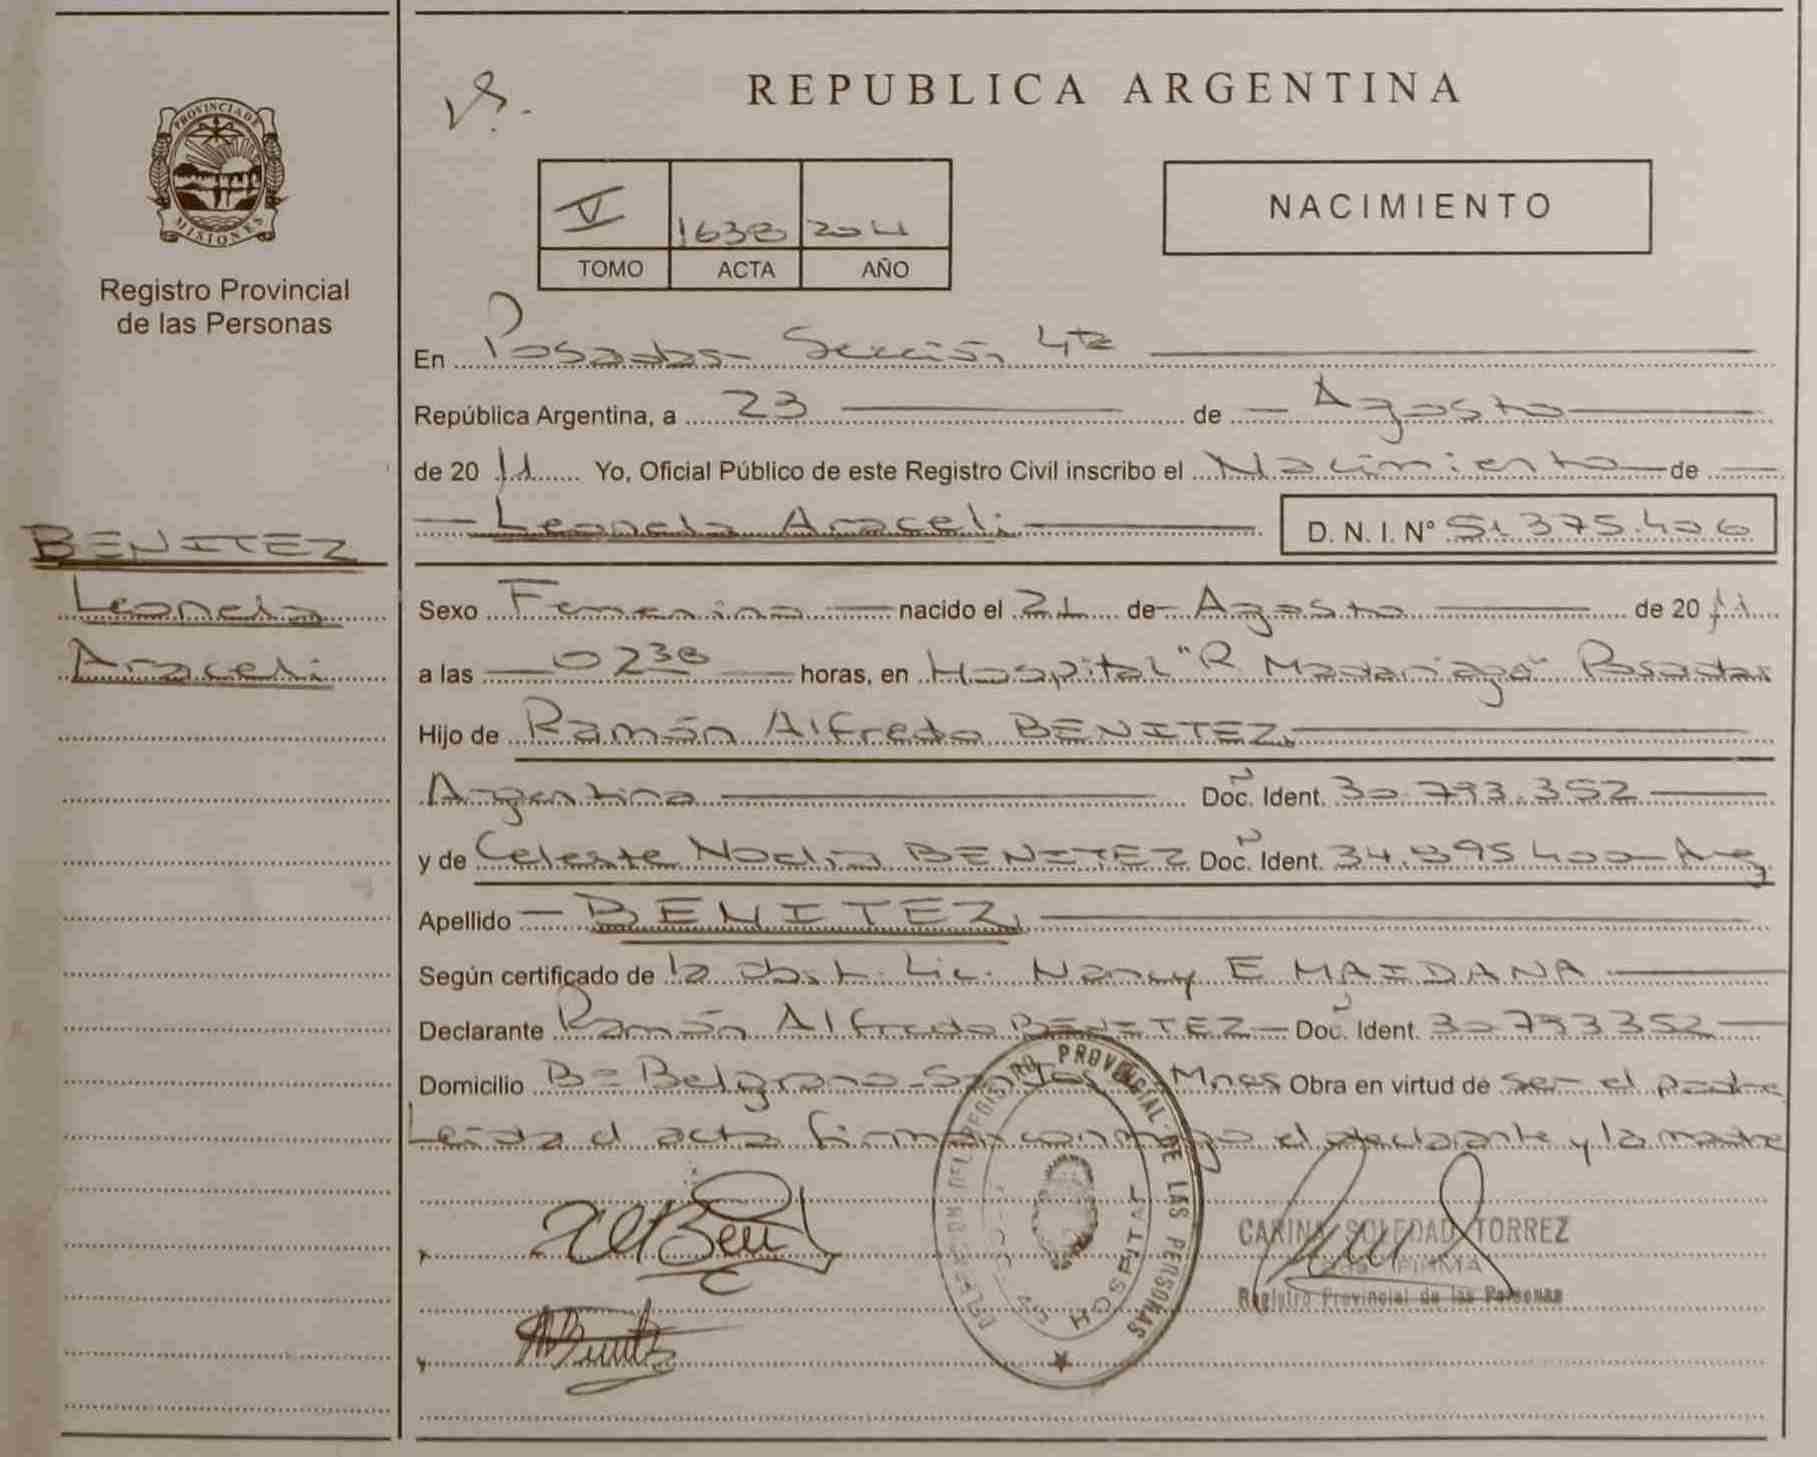 PROVINCIA DE
MISIONES
Registro Provincial
de las Personas
BENITEZ
Leonela
Araceli
REPUBLICA ARGENTINA
V 1638 2011
TOMO ACTA AÑO
NACIMIENTO
En Posadas Sección 4ta
República Argentina, a 23 de Agosto
de 2011 Yo, Oficial Público de este Registro Civil inscribo el Nacimiento de
Leonela Araceli D. N. I. N° 51.375.406
Sexo Femenino nacido el 21 de Agosto de 2011
a las 02 38 horas, en Hospital "R Madariaga" Posadas
Hijo de Ramón Alfredo BENITEZ
Argentina Doc. Ident. 30.793.352
y de Celeste Noelia BENITEZ Doc. Ident. 34.895.400 Arg
Apellido BENITEZ
Según certificado de la obst. Lic. Nancy E MAIDANA
Declarante Ramón Alfredo BENITEZ Doc. Ident. 30793352
Domicilio B= Belgrano Mnes Obra en virtud de ser el padre
Leida el acta firman conmigo el declarante y la madre
REGISTRO PROVINCIAL DE LAS PERSONAS
HOSPITAL
CARINA SOLEDAD TORREZ
FIRMA
Registro Provincial de las Personas